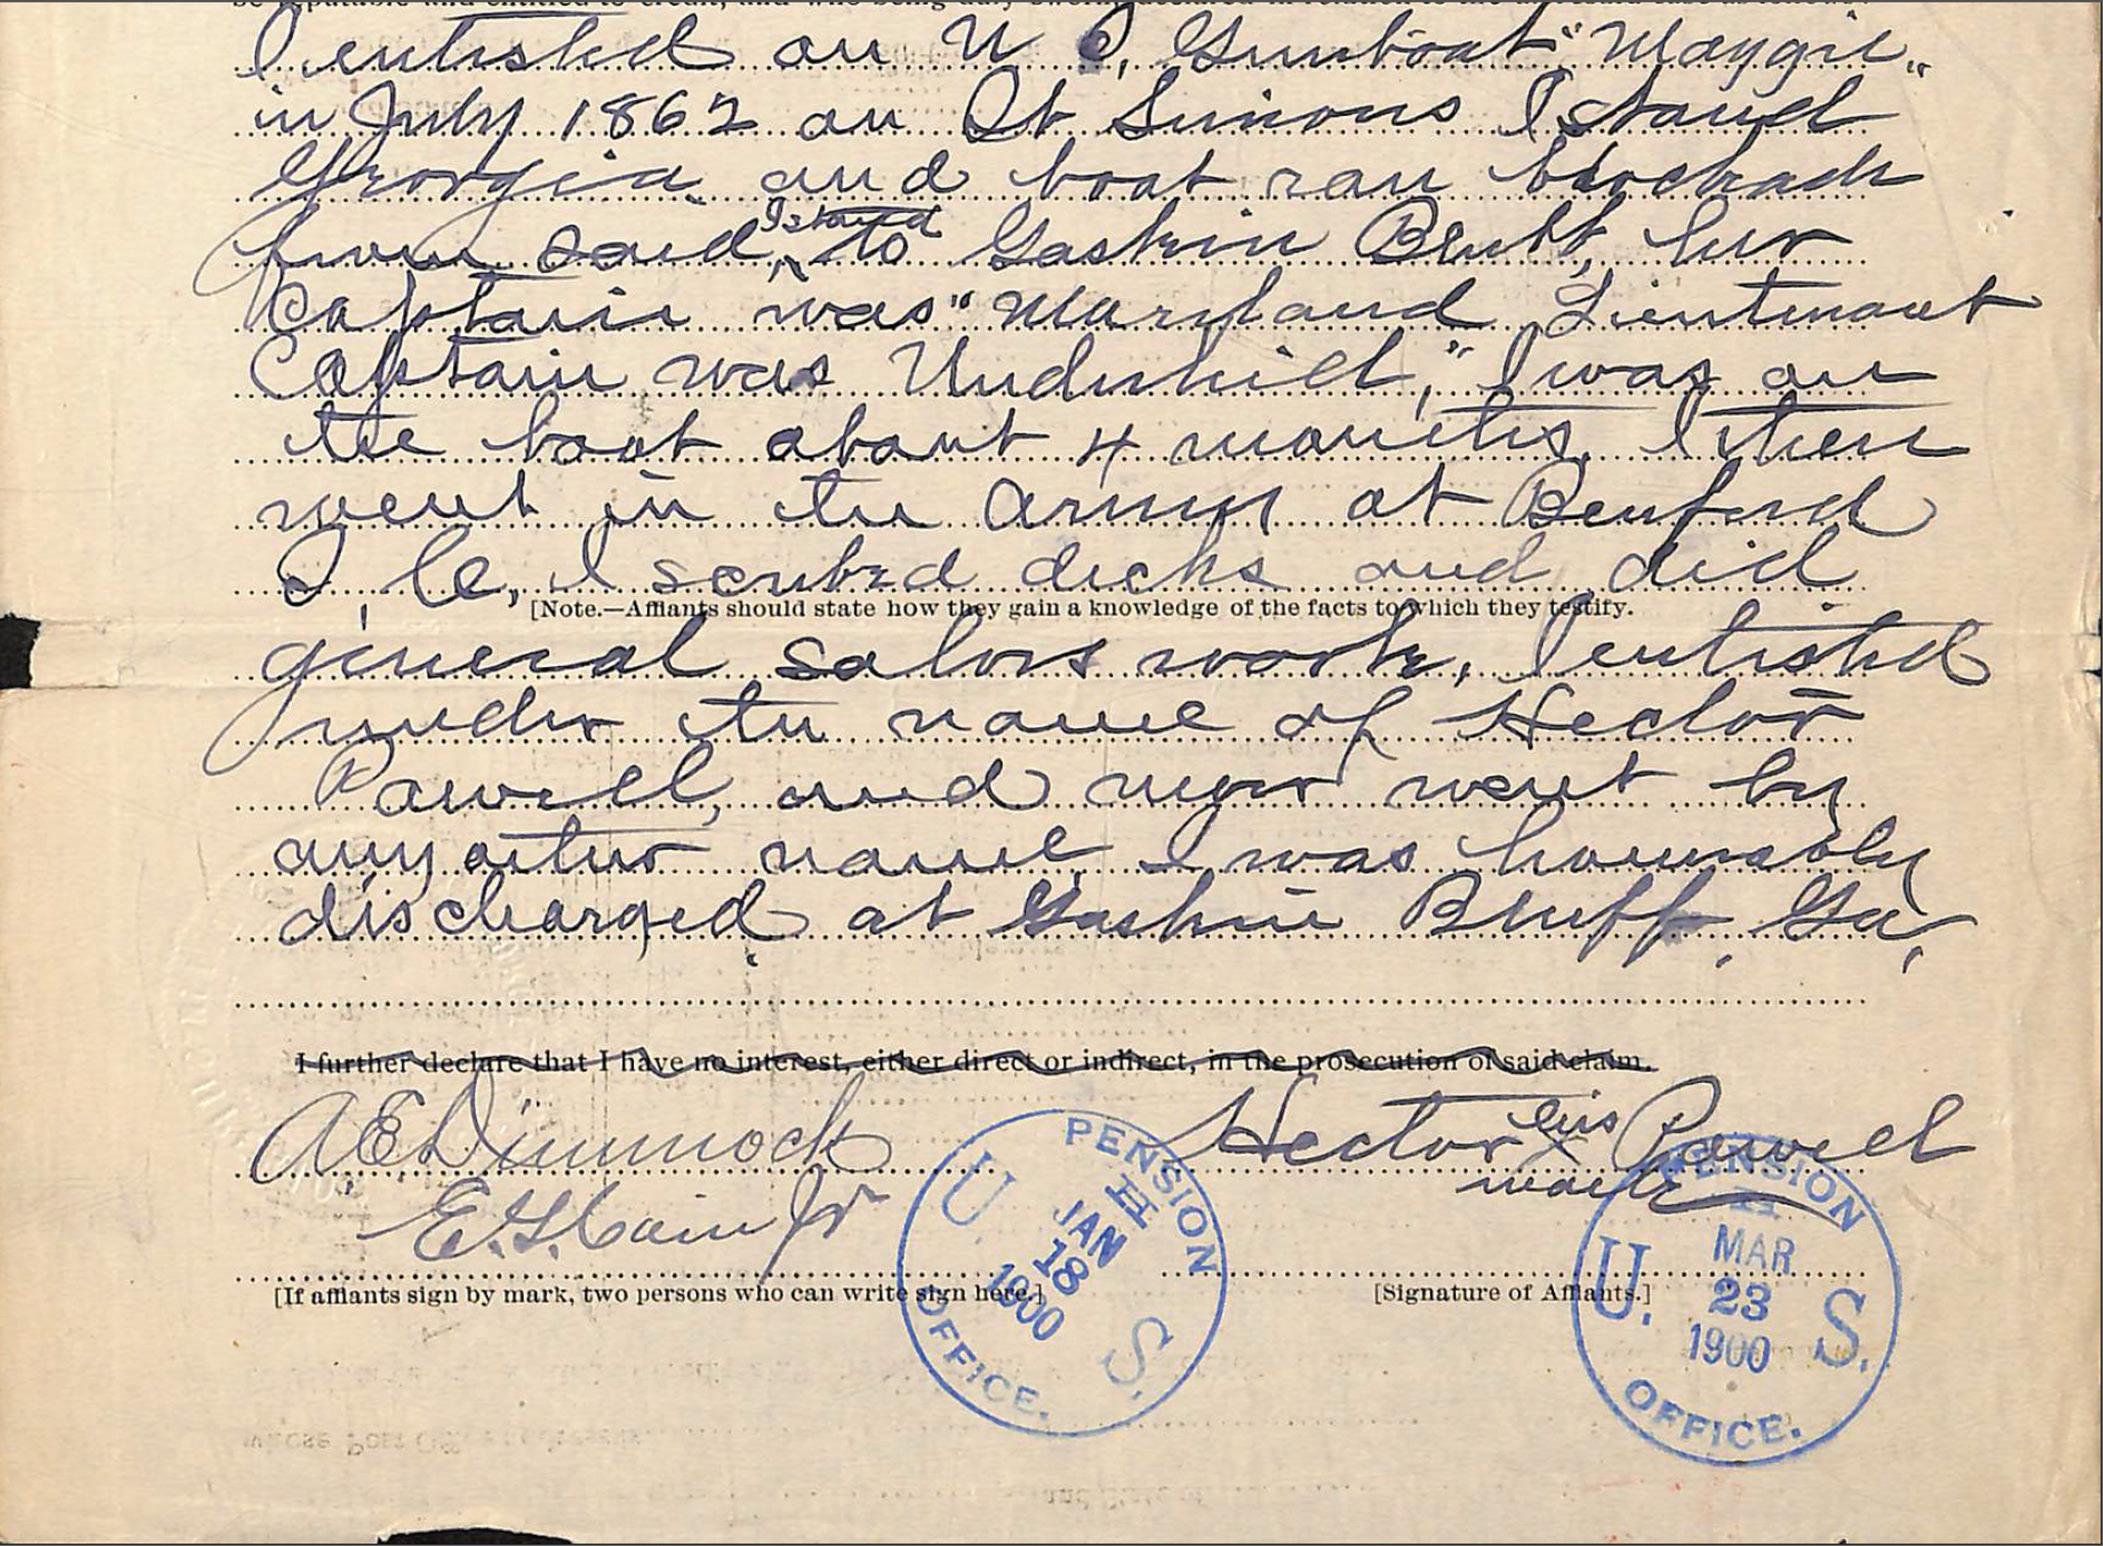 be reputable and entitled to credit, and who being duly sworn, declared in relation to the aforesaid case as follows:
I enlisted on U S, Gunboat "Maggie"
in July 1862 on St Simons Island
Georgia and boat ran blockade
from said Island to Gaskin Bluff, her
Captain was "Maryland Lieutenant
Captain was Underhill," I was on
the boat about 4 months. I then
went in the Army at Beuford
S, C, I scubed decks and did
[Note.—Affiants should state how they gain a knowledge of the facts to which they testify.
general salors work, I enlisted
under the name of Hector
Powell, and never went by
any other name I was honorably
discharged at Gaskin Bluff, Ga,
I further declare that I have no interest, either direct or indirect, in the prosecution of said claim.
A E Dimmock Hector his X Powell
mark
E. G. Cain Jr
[If affiants sign by mark, two persons who can write sign here.] [Signature of Affiants.]
U. S. PENSION OFFICE. H JAN 18 1900
U. S. PENSION OFFICE. MAR 23 1900